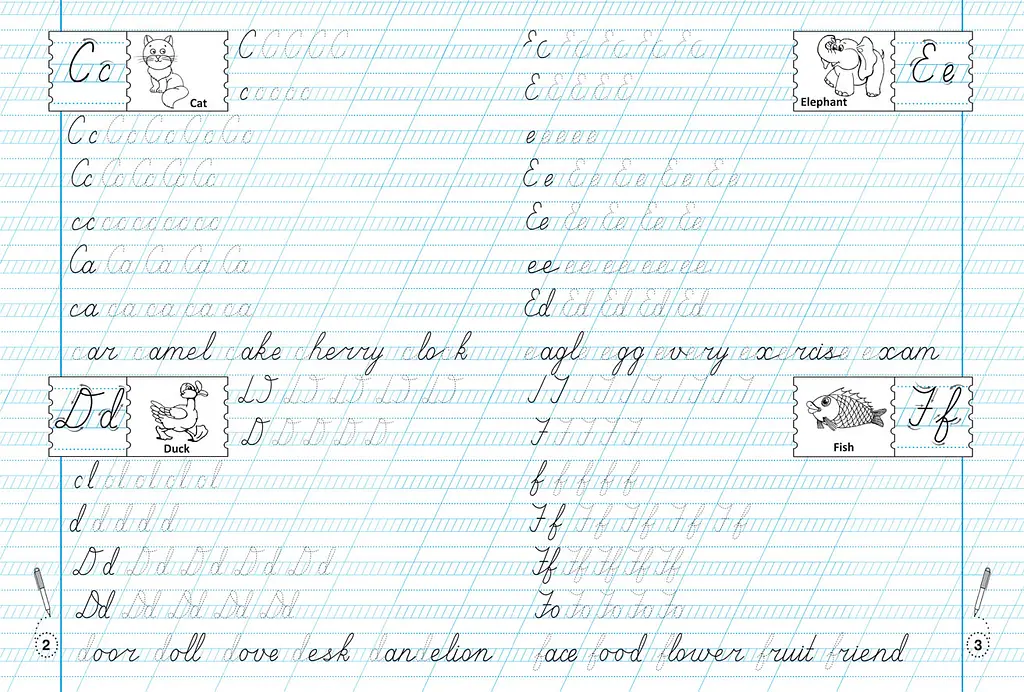 Cc
Cat
C C C C C
c c c c c
Cc Cc Cc Cc Cc
Cc Cc Cc Cc Cc
cc cc cc cc cc
Ca Ca Ca Ca Ca
ca ca ca ca ca
car camel cake cherry clock
Dd
Duck
D D D D D
cl cl cl cl cl
d d d d d
D d D d D d D d D d
Dd Dd Dd Dd Dd
door doll dove desk dandelion
2
Ec Ec Ec Ec Ec
Elephant
Ee
E E E E E
e e e e e
E e E e E e E e E e
Ee Ee Ee Ee Ee
ee ee ee ee ee
Ed Ed Ed Ed Ed
eagle egg every exercise exam
Fish
Ff
F F F F F
f f f f f
F f F f F f F f F f
Ff Ff Ff Ff Ff
Fo Fo Fo Fo Fo
face food flower fruit friend
3